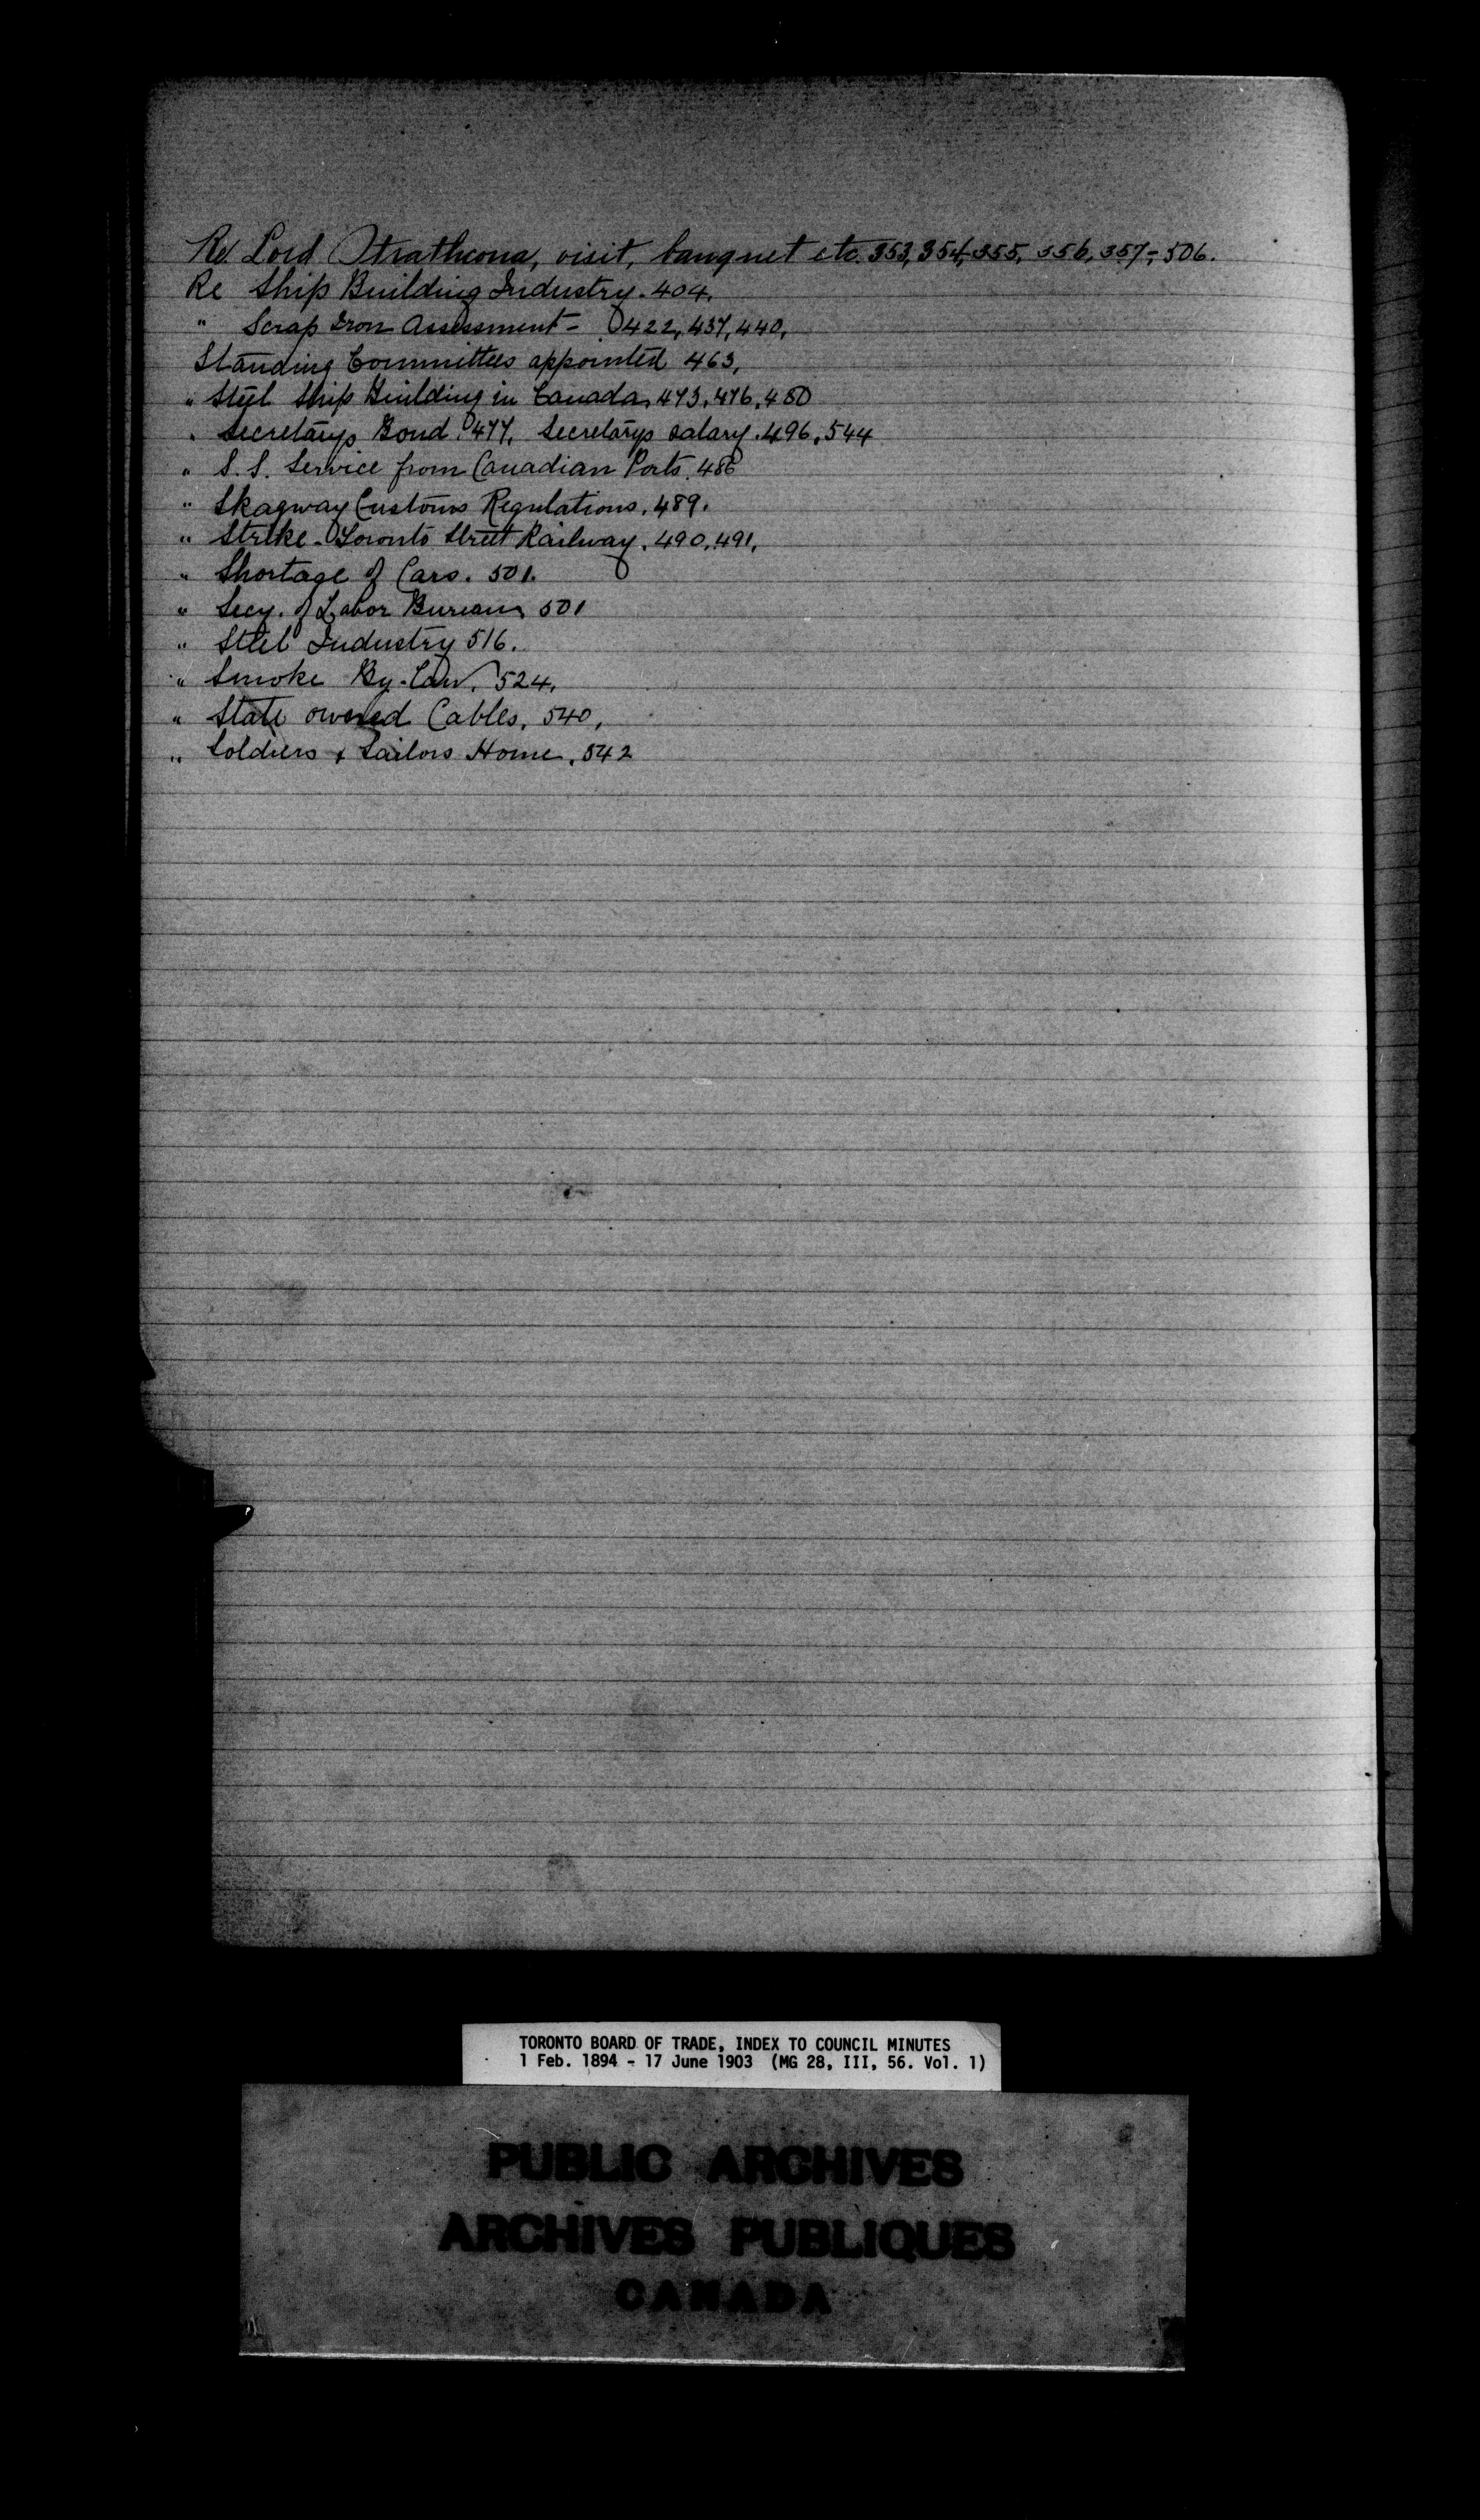 Re Lord Strathcona, visit, banquet etc. 353, 354, 355, 356, 357, - 506.
Re Ship Building Industry. 404.
" Scrap Iron Assessment - 422, 437, 440,
Standing Committees appointed 463,
" Steel Ship Building in Canada, 473, 476, 480
" Secretarys Bond. 477, Secretarys salary. 496, 544
" S.S. Service from Canadian Ports, 486
" Skagway Customs Regulations, 489.
" Strike - Toronto Street Railway, 490, 491,
" Shortage of Cars. 501.
" Secy. of Labor Bureau, 501
" Steel Industry 516.
" Smoke By-Law, 524,
" State owned Cables, 540,
" Soldiers & Sailors Home, 542
TORONTO BOARD OF TRADE, INDEX TO COUNCIL MINUTES
1 Feb. 1894 - 17 June 1903 (MG 28, III, 56. Vol. 1)
PUBLIC ARCHIVES
ARCHIVES PUBLIQUES
CANADA